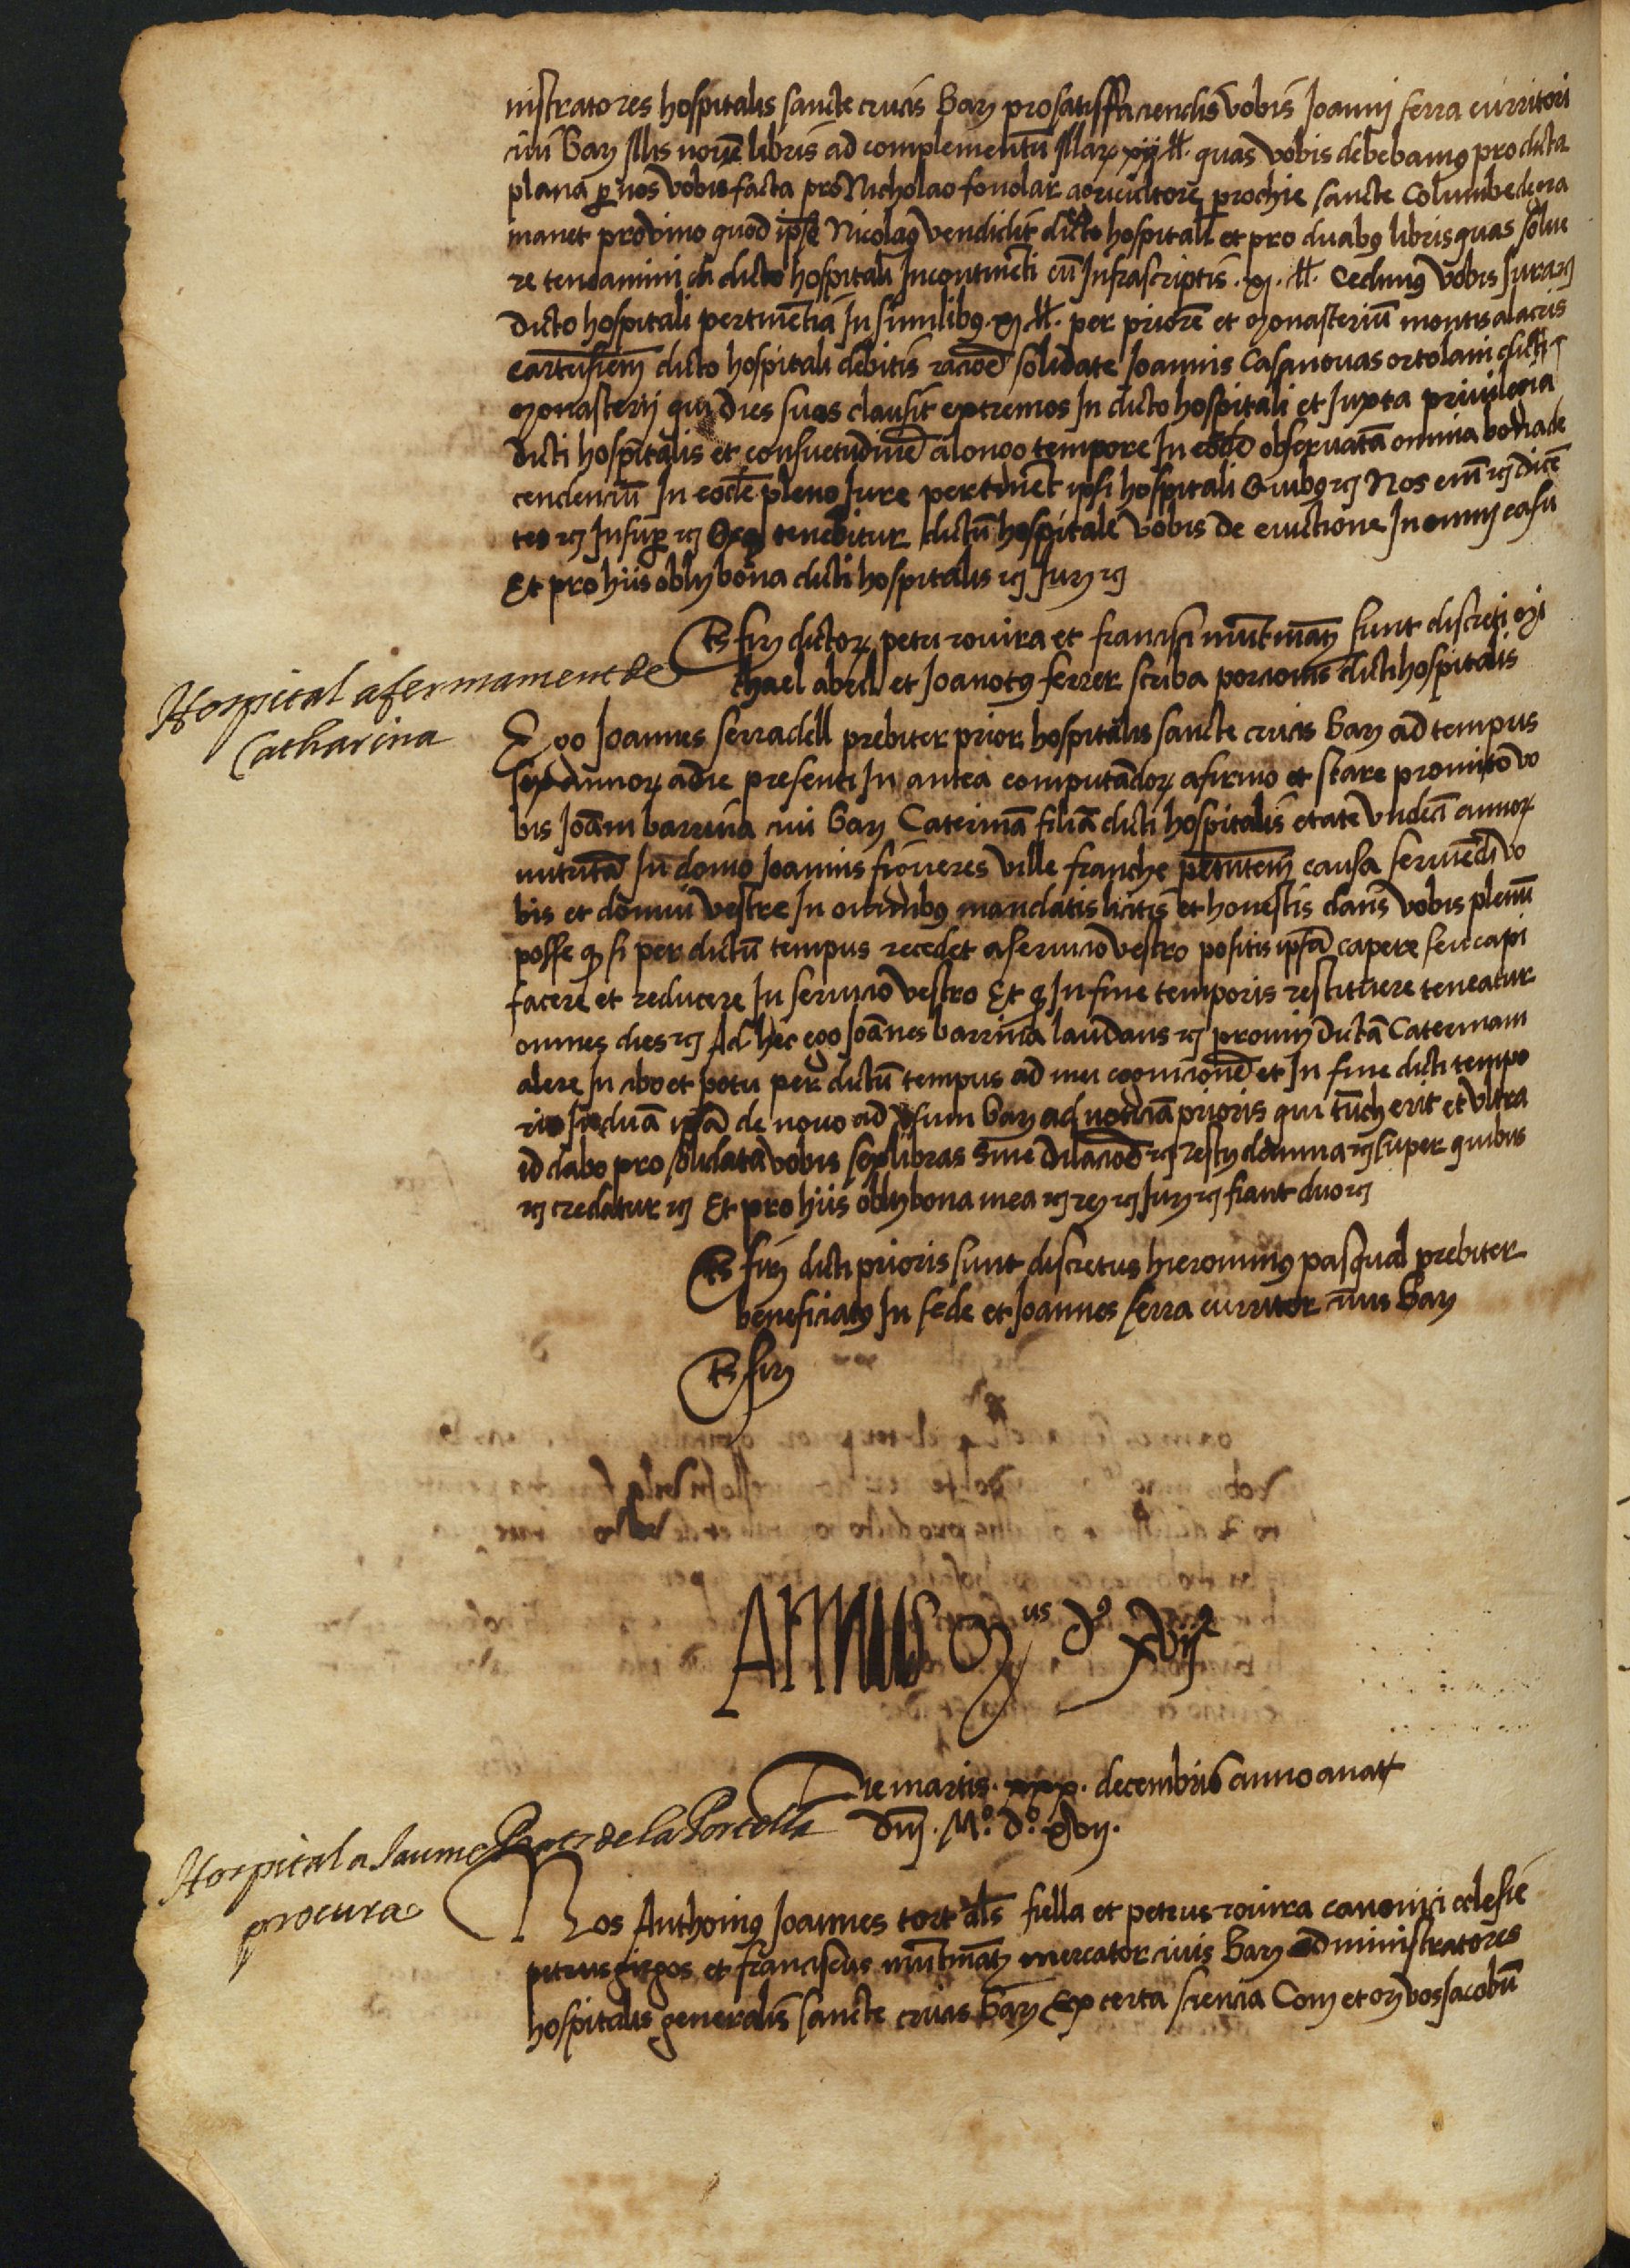 nistratores hospitalis sancte crucis Barꝫ pro satisffaciendis vobis Joanni serra curritori
civi Barꝫ illis novē libris ad complementū illarꝝ xii ll. quas vobis debebamꝰ pro dicta
plana ꝑ nos vobis facta pro Nicholao fonolar agricultore prochie sancte Columbe de gra
manet pro vino quod ipse Nicolaꝰ vendidit dicto hospitali et pro duabꝰ libris quas solve
re teneamini dicto hospitali Incontinēti cū Infrascriptis . xi . ll. Cedimꝰ vobis Jura rꝫ
dicto hospitali pertinētia In similibꝰ . xi ll. per priorē et monasteriū montis alacris
cartusieñ dicto hospitali debitis racōe solidate Joannis Casanovas ortolani dicti
monasterii qui dies suos clausit extremos In dicto hospitali et Juxta privilegia
dicti hospitalis et consuetudinē a longo tempore In eodē observatā omnia bona de
cendenciū In eodē pleno Jure pertinēt ipsi hospitali Quibꝰ rꝫ Nos enī rꝫ dicē
tes rꝫ Insuꝑ rꝫ tenebitur dictū hospitale vobis de evictione In omni casu
Et pro hiis oblꝫ bona dicti hospitalis rꝫ Jurꝫ rꝫ
Ts firꝫ dictorꝝ petri rovira et francisci mūtmāy sunt discreti mi
chael abell et Joanotꝰ ferrer scriba porcionis dicti hospitalis
Hospital afermament de
Catharina
Ego Joannes serradell prebiter prior hospitalis sancte crucis Barꝫ ad tempus
sex annorꝝ a die presenti In antea computādorꝝ afirmo et stare promitō vo
bis Joāni barrina civi Barꝫ Caterinā filiā dicti hospitalis etate undeci annorꝝ
nutritā In domo Joannis figueres ville franche causa serviēdi vo
bis et domui vestre In omnibꝰ mandatis licitis et honestis dans vobis plenū
posse ꝙ si per dictū tempus recedet a servicio vestro positis ipsā capere seu capi
facere et reducere In servicio vestro Et ꝙ In fine temporis restituere teneatur
omnes dies rꝫ Ad hec ego Joānes barrina laudans rꝫ promꝫ dictā Caterinam
alere In cibo et potu per dictū tempus ad mei cognicionē et In fine dicti tempo
ris Induā ipsā de novo ad usum Barꝫ ad noticiā prioris qui tūch erit et ultra
id dabo pro solidata vobis sex libras sine dilacioē rꝫ restꝫ damna rꝫ super quibus
rꝫ credatur rꝫ Et pro hiis oblꝫ bona mea rꝫ reꝫ rꝫ Jurꝫ rꝫ fiant duo rꝫ
Ts firꝫ dicti prioris sunt discretus hieronimꝰ pasqual prebiter
beneficiatꝰ In sede et Joannes serra curritor civis Barꝫ
Ts firꝫ
ANNUS Mus dº xviiº
Die martis . xxx . decembris anno a natꝭ
dnj . Mº . dº . xvii .
Hospital a Jaume Prats de la Portella
procura
Nos Anthoniꝰ Joannes tort als fiella et petrus rovira canonici eclesie
petrus girgos et franciscus mūtmāy mercator civis Barꝫ administratores
hospitalis generalis sancte crucis Barꝫ Ex certa siencia Comꝫ et orꝫ vos Jacobū